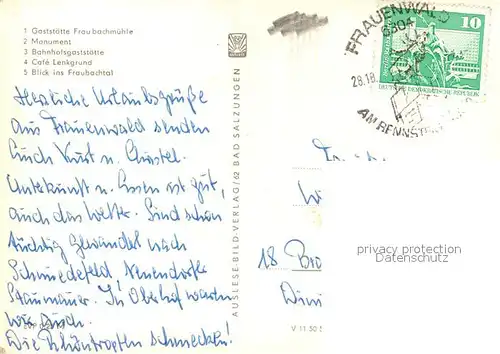 1 Gaststätte Fraubachmühle
2 Monument
3 Bahnhofsgaststätte
4 Café Lenkgrund
5 Blick ins Fraubachtal
Herzliche Urlaubsgrüße
aus Frauenwald senden
Euch Kurt u. Christel.
Unterkunft u. Essen ist gut,
auch das Wetter. Sind schon
tüchtig gewandert nach
Schmiedefeld, Neuendorfer
Staumauer. In Oberhof waren
wir auch.
Die Rhöntropfen schmecken!
AUSLESE-BILD-VERLAG/62 BAD SALZUNGEN
FRAUENWALD
6304
28.10.
AM RENNSTEIG
10
DEUTSCHE DEMOKRATISCHE REPUBLIK
18
privacy protection
Datenschutz
V 11 50